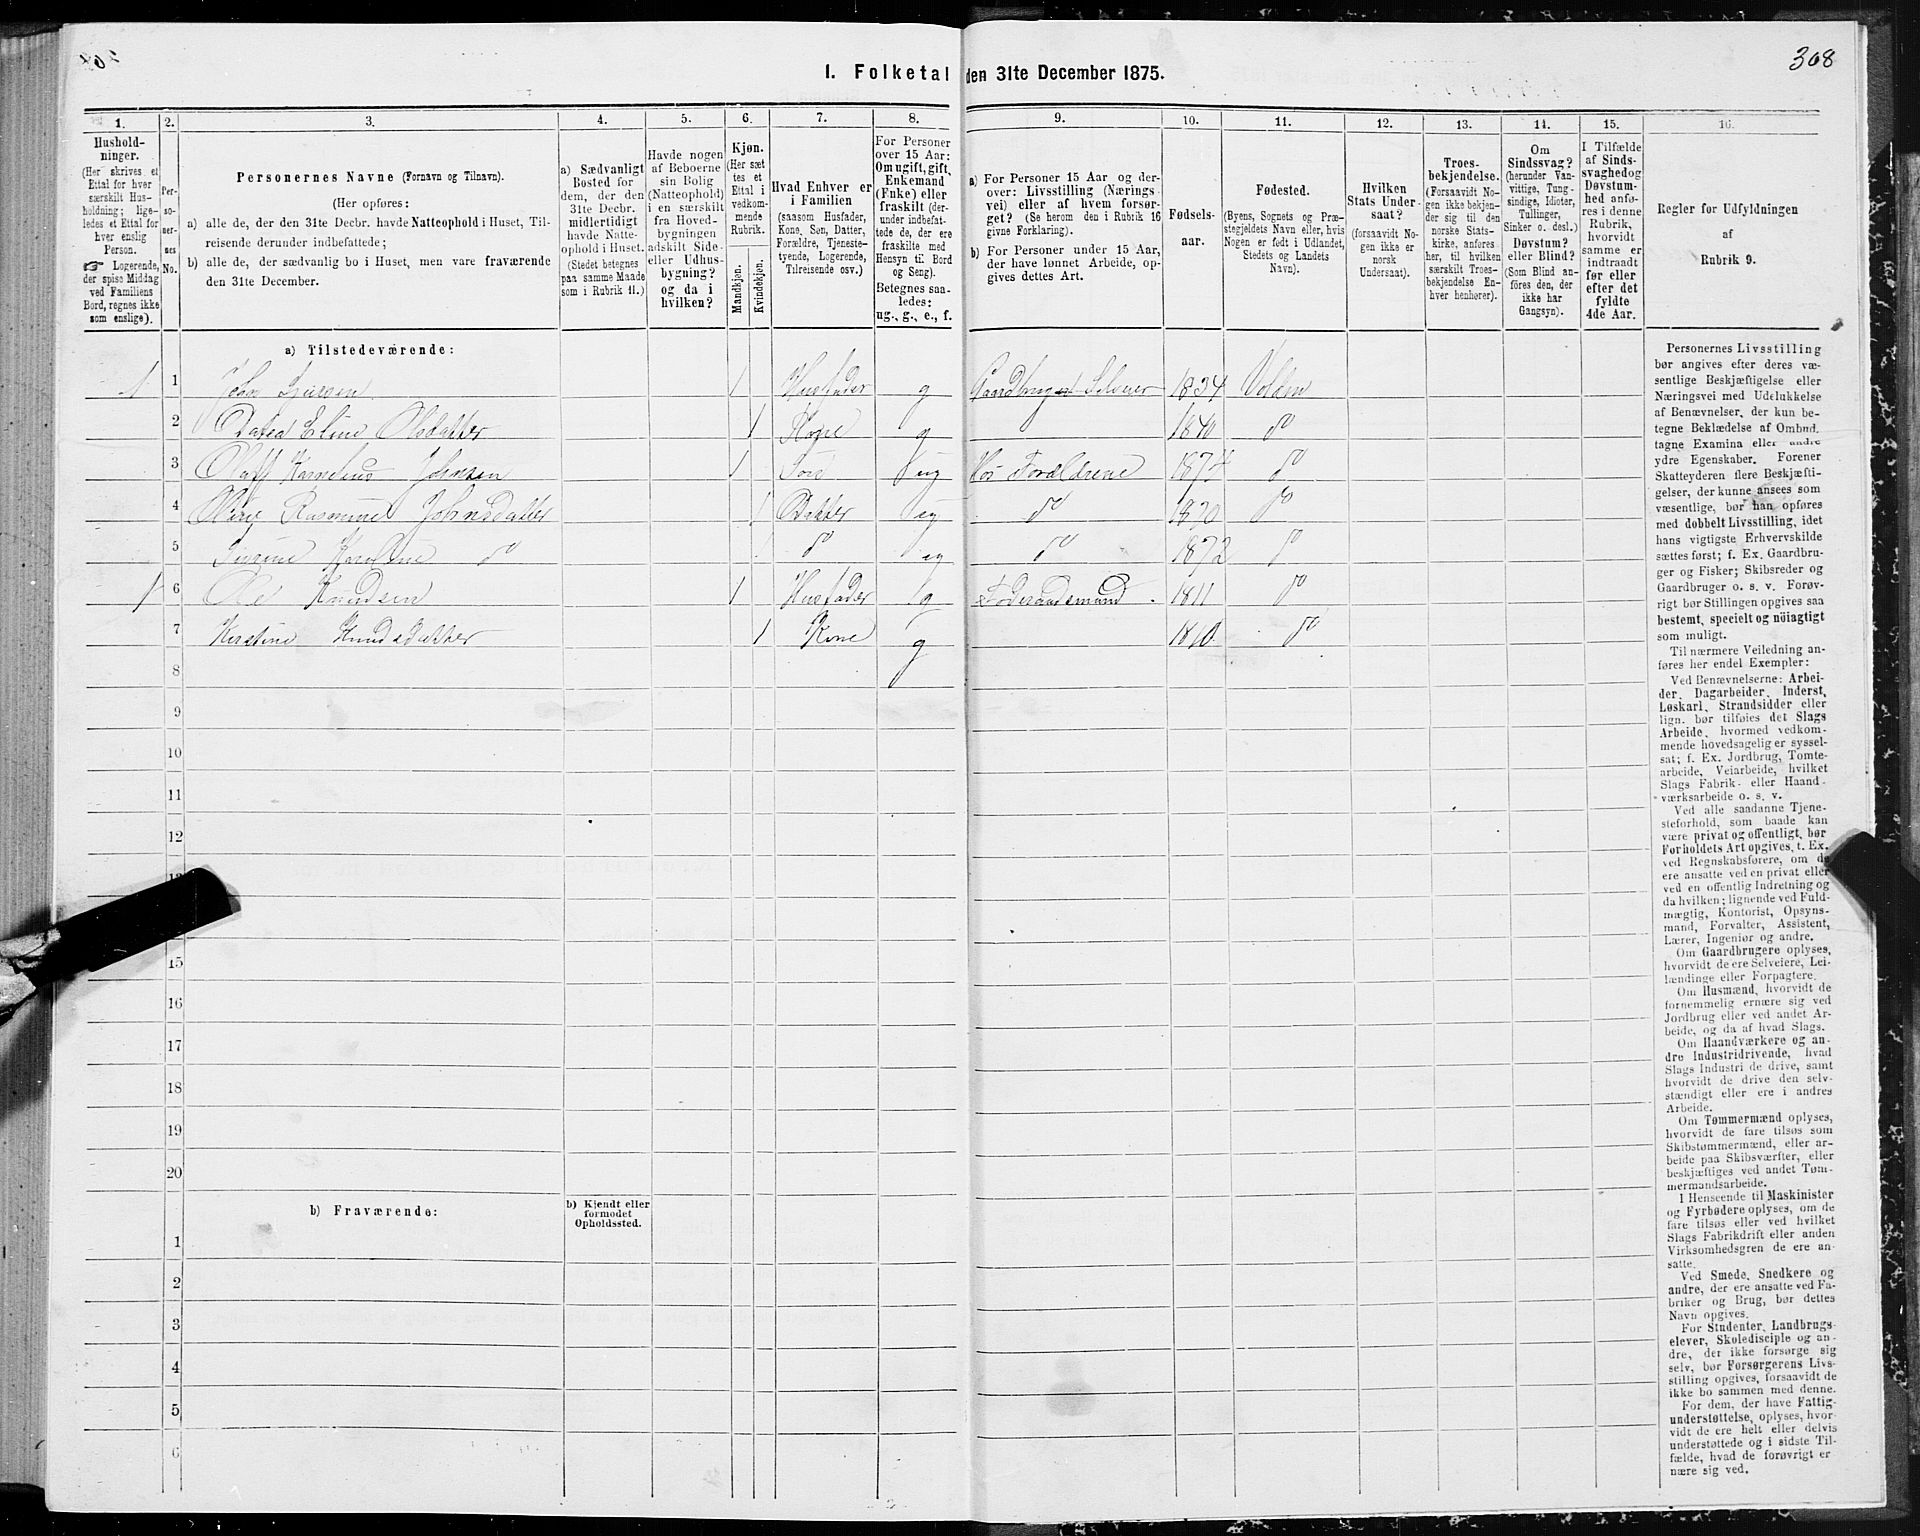 308
I. Folketal den 31te December 1875.
1. 2. 3. 4. 5. 6. 7. 8. 9. 10. 11. 12. 13. 14. 15. 16.
Hushold-
ninger.
(Her skrives et
Ettal for hver
særskilt Hus-
holdning; lige-
ledes et Ettal for
hver enslig
Person.
☞ Logerende,
der spise Middag
ved Familiens
Bord, regnes ikke
som enslige).
Per-
so-
ner-
nes
No.
Personernes Navne (Fornavn og Tilnavn).
(Her opføres:
a) alle de, der den 31te Decbr. havde Natteophold i Huset, Til-
reisende derunder indbefattede;
b) alle de, der sædvanlig bo i Huset, men vare fraværende
den 31te December.
a) Sædvanligt
Bosted for
dem, der den
31te Decbr.
midlertidigt
havde Natte-
ophold i Huset.
(Stedet betegnes
paa samme Maade
som i Rubrik 11.)
Havde nogen
af Beboerne
sin Bolig
(Natteophold)
i en særskilt
fra Hoved-
bygningen
adskilt Side-
eller Udhus-
bygning?
og da i
hvilken?
Kjøn.
(Her sæt
tes et
Ettal i
vedkom-
mende
Rubrik.
Mandkjøn.
Kvindekjøn.
Hvad Enhver er
i Familien
(saasom Husfader,
Kone, Søn, Datter,
Forældre, Tjeneste-
tyende, Logerende,
Tilreisende osv.)
For Personer
over 15 Aar:
Om ugift, gift,
Enkemand
(Enke) eller
fraskilt (der-
under indbefat-
tede de, der ere
fraskilte med
Hensyn til Bord
og Seng).
Betegnes saa-
ledes:
ug., g., e., f.
a) For Personer 15 Aar og der-
over: Livsstilling (Nærings-
vei) eller af hvem forsør-
get? (Se herom den i Rubrik 16
givne Forklaring).
b) For Personer under 15 Aar,
der have lønnet Arbeide, op-
gives dettes Art.
Fødsels-
aar.
Fødested.
(Byens, Sognets og Præ-
stegjeldets Navn eller, hvis
Nogen er født i Udlandet,
Stedets og Landets
Navn).
Hvilken
Stats Under-
saat?
(forsaavidt No-
gen ikke er
norsk
Undersaat).
Troes-
bekjendelse.
(Forsaavidt No-
gen ikke bekjen-
der sig til den
norske Stats-
kirke, anfø-
res her, til hvilken
særskilt Troes-
bekjendelse En-
hver henhører).
Om
Sindssvag?
(herunder Van-
vittige, Tung-
sindige, Idioter,
Tullinger,
Sinker o. desl.)
Døvstum?
eller Blind?
(Som Blind an-
føres den, der
ikke har
Gangsyn).
I Tilfælde
af Sinds-
svaghed og
Døvstum-
hed anfø-
res i denne
Rubrik,
hvorvidt
samme er
indtraadt
før eller
efter det
fyldte
4de Aar.
Regler for Udfyldningen
af
Rubrik 9.
a) Tilstedeværende:
1 1 1 Husfader g 1834
2 Eline Olsdatter 1 Kone g 1840 do
3 Johnsen 1 Søn ug Hos Forældrene 1874 do
4 Rasmine Johnsdatter 1 Datter ug do 1870 do
5 do 1 do ug do 1872 do
1 6 Ole Knudsen 1 Husfader g Føderaadsmand 1811 do
7 Kirstine Knudsdatter 1 Kone g 1810 do
8
9
10
11
12
13
15
16
17
18
19
20
b) Fraværende:
b) Kjendt eller
formodet
Opholdssted.
1
2
3
4
5
6
Personernes Livsstilling
bør angives efter deres væ-
sentlige Beskjæftigelse eller
Næringsvei med Udelukkelse
af Benævnelser, der kun be-
tegne Beklædelse af Ombud,
tagne Examina eller andre
ydre Egenskaber. Forener
Skatteyderen flere Beskjæfti-
gelser, der kunne ansees som
væsentlige, bør han opføres
med dobbelt Livsstilling, idet
hans vigtigste Erhvervskilde
sættes først; f. Ex. Gaardbru-
ger og Fisker; Skibsreder og
Gaardbruger o. s. v. Forøv-
rigt bør Stillingen opgives saa
bestemt, specielt og nöiagtigt
som muligt.
Til nærmere Veiledning an-
føres her endel Exempler:
Ved Benævnelserne: Arbei-
der, Dagarbeider, Inderst,
Løskarl, Strandsidder eller
lign. bør tilføies det Slags
Arbeide, hvormed vedkom-
mende hovedsagelig er syssel-
sat; f. Ex. Jordbrug, Tomte-
arbeide, Veiarbeide, hvilket
Slags Fabrik- eller Haand-
værksarbeide o. s. v.
Ved alle saadanne Tjene-
steforhold, som baade kan
være privat og offentligt, bør
Forholdets Art opgives, t. Ex.
ved Regnskabsførere, om de
ere ansatte ved en privat eller
ved en offentlig Indretning og
da hvilken; lignende ved Fuld-
mægtig, Kontorist, Opsyns-
mand, Forvalter, Assistent,
Lærer, Ingeniør og andre.
Om Gaardbrugere oplyses,
hvorvidt de ere Selveiere, Lei-
lændinge eller Forpagtere.
Om Husmænd, hvorvidt de
fornemmelig ernære sig ved
Jordbrug eller ved andet Ar-
beide, og da af hvad Slags.
Om Haandværkere og an-
dre Industridrivende, hvad
Slags Industri de drive, samt
hvorvidt de drive den selv-
stændigt eller ere i andres
Arbeide.
Om Tømmermænd oplyses,
hvorvidt de fare tilsøs som
Skibstømmermænd, eller ar-
beide paa Skibsværfter, eller
beskjæftiges ved andet Tøm-
mermandsarbeide.
I Henseende til Maskinister
og Fyrbødere oplyses, om de
fare tilsøs eller ved hvilket
Slags Fabrikdrift eller anden
Virksomhedsgren de ere an-
satte.
Ved Smede, Snedkere og
andre, der ere ansatte ved Fa-
briker og Brug, bør dettes
Navn opgives.
For Studenter, Landbrugs-
elever, Skoledisciple og an-
dre, der ikke forsørge sig
selv, bør Forsørgerens Livs-
stilling opgives, forsaavidt de
ikke bo sammen med denne.
For dem, der have Fattig-
understøttelse, oplyses, hvor-
vidt de ere helt eller delvis
understøttede og i sidste Til-
fælde, hvad de forøvrigt er-
nære sig ved.